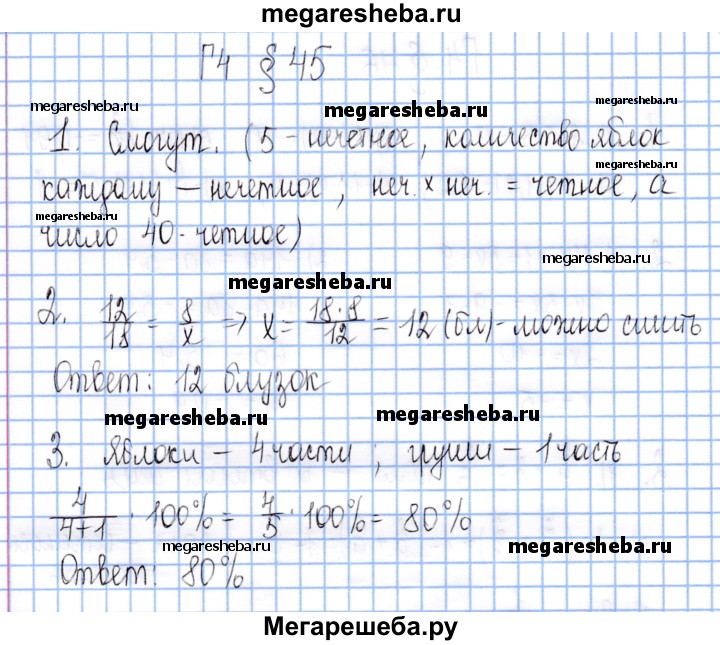 megaresheba.ru
Г4 § 45
megaresheba.ru
megaresheba.ru
megaresheba.ru
1. Смогут. (5 - нечетное, количество яблок
megaresheba.ru
каждому — нечетное; неч. × неч. = четное, а
megaresheba.ru
число 40 - четное)
megaresheba.ru
megaresheba.ru
2. 12/18 = 8/x => x = 18·8/12 = 12 (бл) - можно сшить
Ответ: 12 блузок
megaresheba.ru
megaresheba.ru
3. Яблоки — 4 части; груши — 1 часть
4/4+1 · 100% = 4/5 · 100% = 80%
megaresheba.ru
megaresheba.ru
Ответ: 80%
megaresheba.ru
Мегарешеба.ру